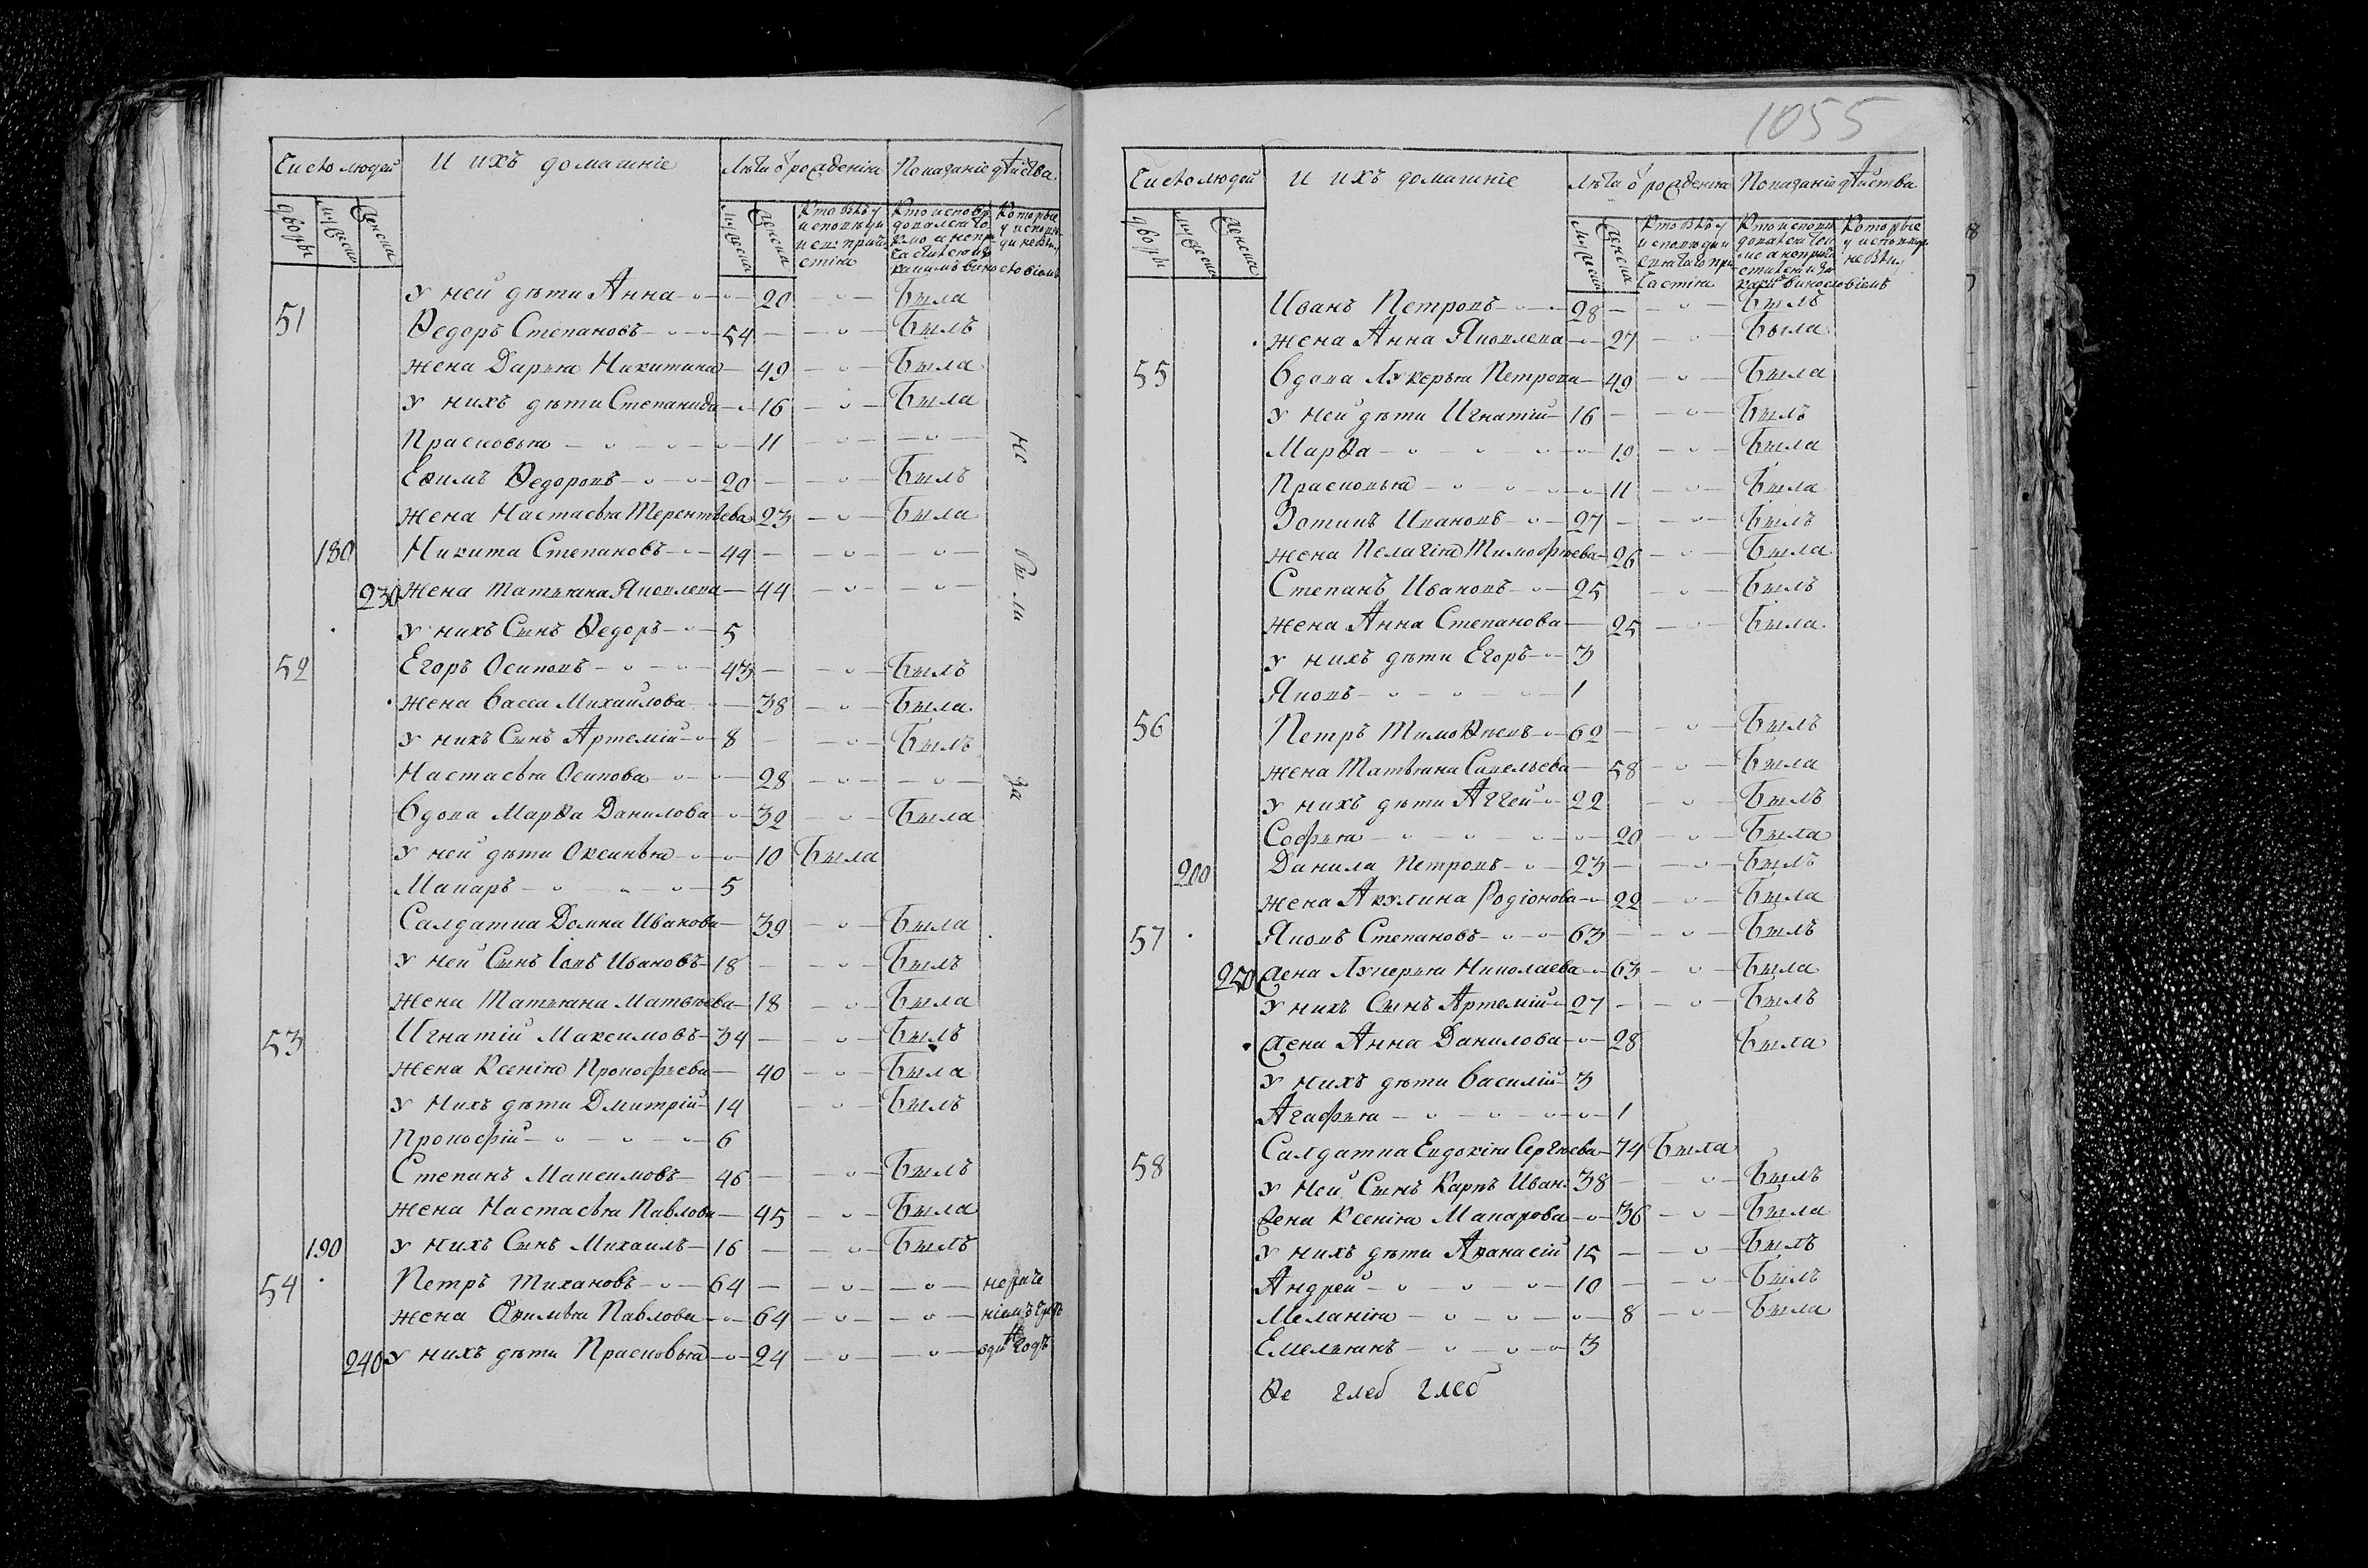 Число людей И ихъ домашніе Лѣта ѿ рожденія Показаніе дѣйства
дворы мужеска женска мужеска женска
У ней дѣти Анна 20 Была
51 Ѳедоръ Степановъ 54 Былъ
жена Дарья Никитина 49 Была
У нихъ дѣти Степанида 16 Была
Прасковья 11
Еѳимъ Ѳедоровъ 20 Былъ
жена Настасья Терентьева 23 Была
180 Никита Степановъ 44
230 жена Татьяна Яковлева 44
У нихъ Сынъ Ѳедоръ 5
52 Егоръ Осиповъ 43 Былъ
жена Васса Михаилова 38 Была
У нихъ Сынъ Артемій 8 Былъ
Настасья Осипова 28
Вдова Марѳа Данилова 32 Была
У ней дѣти Оксинья 10 Была
Макаръ 5
Салдатка Домна Иванова 39 Была
У ней Сынъ Іовъ Ивановъ 18 Былъ
жена Татьяна Матвѣева 18 Была
53 Игнатій Максимовъ 34 Былъ
жена Ксенія Прокофьева 40 Была
У Нихъ дѣти Дмитрій 14 Былъ
Прокофій 6
Степанъ Максимовъ 46 Былъ
жена Настасья Павлова 45 Была
190 У нихъ Сынъ Михаилъ 16 Былъ
54 Петръ Тихановъ 64
жена Ѳѳимья Павлова 64
240 У нихъ дѣти Прасковья 24
не
бы
ли
за
1055
Число людей И ихъ домашніе Лѣта ѿ рожденія Показаніе дѣйства
дворы мужеска женска мужеска женска
Иванъ Петровъ 28 Былъ
жена Анна Яковлева 27 Была
55 Вдова Лукерья Петрова 49 Была
У ней дѣти Игнатій 16 Былъ
Марѳа 19 Была
Прасковья 11 Была
Зотикъ Ивановъ 27 Былъ
жена Пелагія Тимофѣева 26 Была
Степанъ Ивановъ 25 Былъ
жена Анна Степанова 25 Была
У нихъ дѣти Егоръ 3
Яковъ 1
56 Петръ Тимоѳѣевъ 62 Былъ
жена Татьяна Савельева 58 Была
У нихъ дѣти Аггей 22 Былъ
Софья 20 Была
200 Данила Петровъ 23 Былъ
жена Акулина Родіонова 22 Была
57 Яковъ Степановъ 63 Былъ
250 жена Лукерья Николаева 63 Была
У нихъ Сынъ Артемій 27 Былъ
жена Анна Данилова 28 Была
У нихъ дѣти Василій 3
Агафья 1
58 Салдатка Евдокія Сергѣева 74 Была
У ней Сынъ Карпъ Иван. 38 Былъ
жена Ксенія Макарова 36 Была
У нихъ дѣти Аѳанасій 15 Былъ
Андрей 10 Былъ
Меланія 8 Была
Емельянъ 3
Ѳе глеб глеб